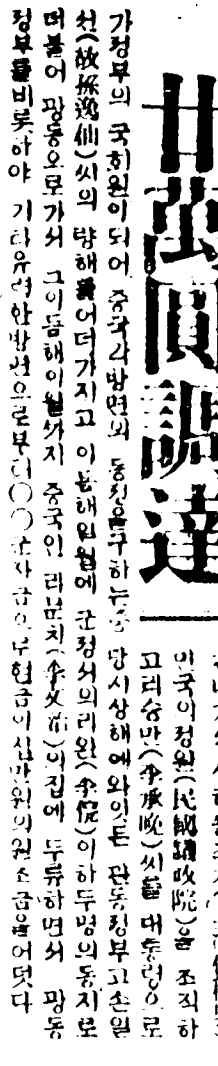 廿萬圓調達
민국의정원(民國議政院)을 조직하
고리승만(李承晩)씨를 대통령으로
가정부의 국회원이되어 중국각방면의 동정을구하는중 당시상해에와잇든 광동정부고손일
선(故孫逸仙)씨의 량해를어더가지고 이듬해일월에 군정서의리완(李俒)이하두명의동지로
더불어 광동으로가서 그이듬해이월까지 중국인 리문치(李文治)의집에 두류하면서 광동
정부를비롯하야 기타유력한방면으로부터〇〇군자금으로현금이십만원의원조금을어덧다